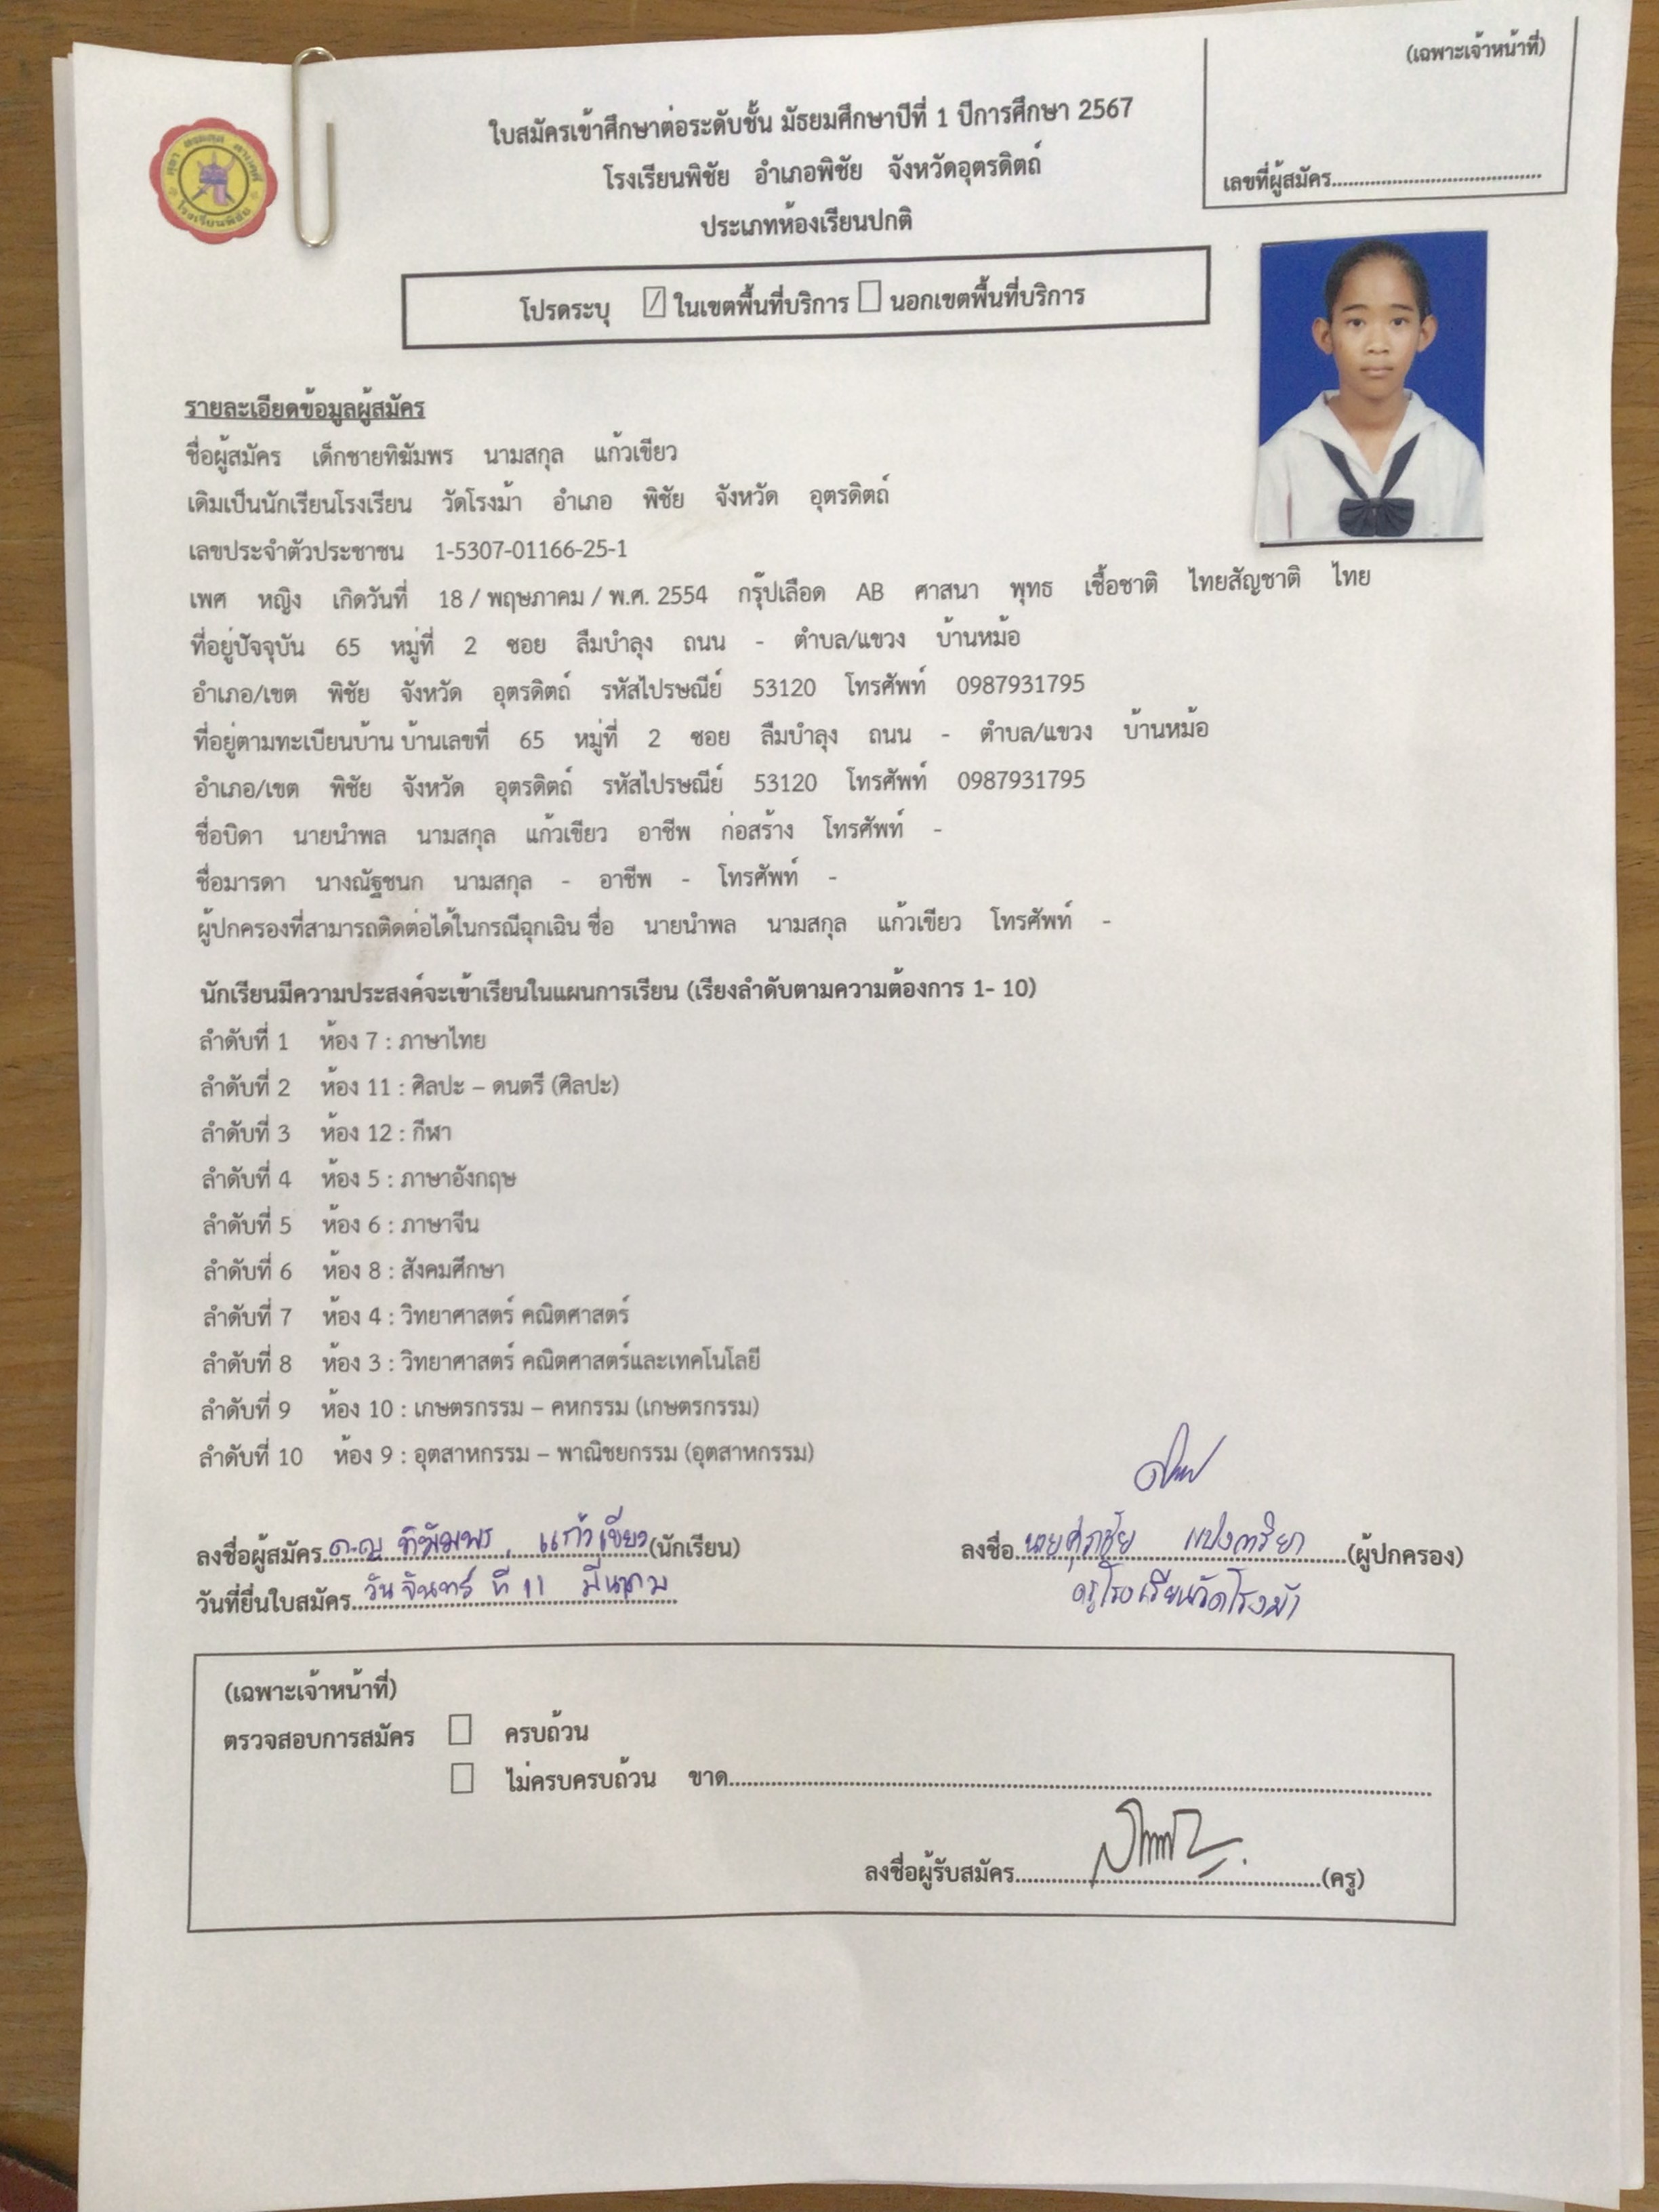 (เฉพาะเจ้าหน้าที่)
เลขที่ผู้สมัคร........................................
โรงเรียนพิชัย
ใบสมัครเข้าศึกษาต่อระดับชั้น มัธยมศึกษาปีที่ 1 ปีการศึกษา 2567
โรงเรียนพิชัย อำเภอพิชัย จังหวัดอุตรดิตถ์
ประเภทห้องเรียนปกติ
โปรดระบุ ในเขตพื้นที่บริการ นอกเขตพื้นที่บริการ
รายละเอียดข้อมูลผู้สมัคร
ชื่อผู้สมัคร เด็กชายทิฆัมพร นามสกุล แก้วเขียว
เดิมเป็นนักเรียนโรงเรียน วัดโรงม้า อำเภอ พิชัย จังหวัด อุตรดิตถ์
เลขประจำตัวประชาชน 1-5307-01166-25-1
เพศ หญิง เกิดวันที่ 18 / พฤษภาคม / พ.ศ. 2554 กรุ๊ปเลือด AB ศาสนา พุทธ เชื้อชาติ ไทยสัญชาติ ไทย
ที่อยู่ปัจจุบัน 65 หมู่ที่ 2 ซอย ลืมบำลุง ถนน - ตำบล/แขวง บ้านหม้อ
อำเภอ/เขต พิชัย จังหวัด อุตรดิตถ์ รหัสไปรษณีย์ 53120 โทรศัพท์ 0987931795
ที่อยู่ตามทะเบียนบ้าน บ้านเลขที่ 65 หมู่ที่ 2 ซอย ลืมบำลุง ถนน - ตำบล/แขวง บ้านหม้อ
อำเภอ/เขต พิชัย จังหวัด อุตรดิตถ์ รหัสไปรษณีย์ 53120 โทรศัพท์ 0987931795
ชื่อบิดา นายนำพล นามสกุล แก้วเขียว อาชีพ ก่อสร้าง โทรศัพท์ -
ชื่อมารดา นางณัฐชนก นามสกุล - อาชีพ - โทรศัพท์ -
ผู้ปกครองที่สามารถติดต่อได้ในกรณีฉุกเฉิน ชื่อ นายนำพล นามสกุล แก้วเขียว โทรศัพท์ -
นักเรียนมีความประสงค์จะเข้าเรียนในแผนการเรียน (เรียงลำดับตามความต้องการ 1- 10)
ลำดับที่ 1 ห้อง 7 : ภาษาไทย
ลำดับที่ 2 ห้อง 11 : ศิลปะ – ดนตรี (ศิลปะ)
ลำดับที่ 3 ห้อง 12 : กีฬา
ลำดับที่ 4 ห้อง 5 : ภาษาอังกฤษ
ลำดับที่ 5 ห้อง 6 : ภาษาจีน
ลำดับที่ 6 ห้อง 8 : สังคมศึกษา
ลำดับที่ 7 ห้อง 4 : วิทยาศาสตร์ คณิตศาสตร์
ลำดับที่ 8 ห้อง 3 : วิทยาศาสตร์ คณิตศาสตร์และเทคโนโลยี
ลำดับที่ 9 ห้อง 10 : เกษตรกรรม – คหกรรม (เกษตรกรรม)
ลำดับที่ 10 ห้อง 9 : อุตสาหกรรม – พาณิชยกรรม (อุตสาหกรรม)
ลงชื่อผู้สมัคร ด.ญ ทิฆัมพร แก้วเขียว (นักเรียน) ลงชื่อ นายศุภชัย (ผู้ปกครอง)
วันที่ยื่นใบสมัคร วันจันทร์ ที่ 11 มีนาคม ครูโรงเรียนวัดโรงม้า
(เฉพาะเจ้าหน้าที่)
ตรวจสอบการสมัคร ครบถ้วน
ไม่ครบครบถ้วน ขาด........................................
ลงชื่อผู้รับสมัคร........................................(ครู)